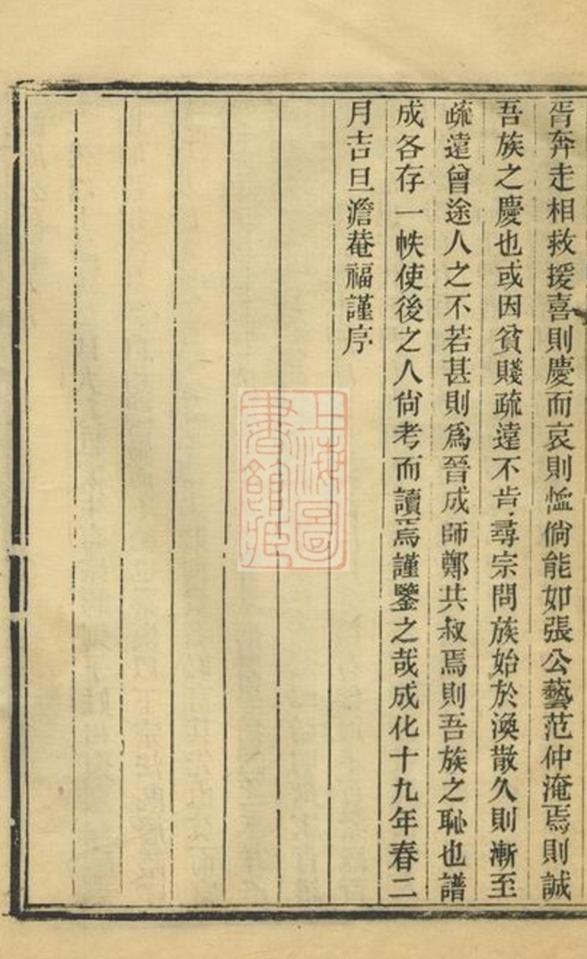 胥奔走相救援喜則慶而哀則恤倘能如張公藝范仲淹焉則誠
吾族之慶也或因貧賤疏遠不肯尋宗問族始於渙散久則漸至
疏遠曾途人之不若甚則爲晉成師鄭共叔焉則吾族之恥也譜
成各存一帙使後之人尙考而讀焉謹鑒之哉成化十九年春二
月吉旦澹菴福謹序
上海圖
書館藏